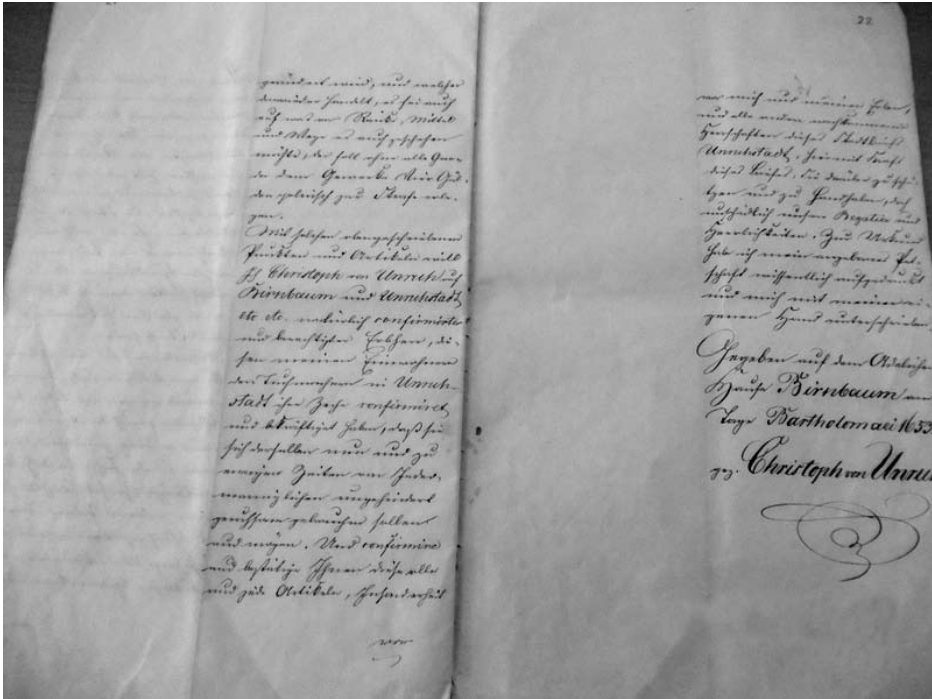 22
geändert wird, und welcher
darwieder handelt, es sei auch
auf was er Weise, Mittel
und Wege es auch geschehen
möchte, der soll ohne alle Gna-
de dem Gewerke Vier Gul-
den polnisch zur Strafe erle-
gen.
Mit solchen obengeschriebenen
Punkten und Artikeln will
Ich Christoph von Unruh auf
Birnbaum und Unruhstadt
etc etc. natürlich confirmirter
und berechtigter Erbherr, die-
sen meinen Einwohnern
den Tuchmachern in Unruh-
stadt ihre Zeche confirmiret
und bekräftiget haben, daß sie
sich derselben nun und zu
ewigen Zeiten von Jeder-
manniglichen ungehindert
geruhsam gebrauchen sollen
und mögen. Und confirmire
und bestätige Ihnen diese alle
und jede Artikeln, Insonderheit
vor
vor mich und meinen Erben,
und alle andern nachkommende
Herrschaften dieses Städtleins
Unruhstadt, hiermit kraft
dieses Briefes. Sie darüber zu schü-
tzen und zu Handhaben, doch
unschädlich meinen Regalien und
Herrlichkeiten. Zur Urkund
hab ich mein angebornes Pet-
schaft wissentlich aufgedruckt
und mich mit meiner ei-
genen Hand unterschrieben.
Gegeben auf dem Adelichen
Hause Birnbaum am
Tage Bartholomaei 1653.
gez. Christoph von Unruh